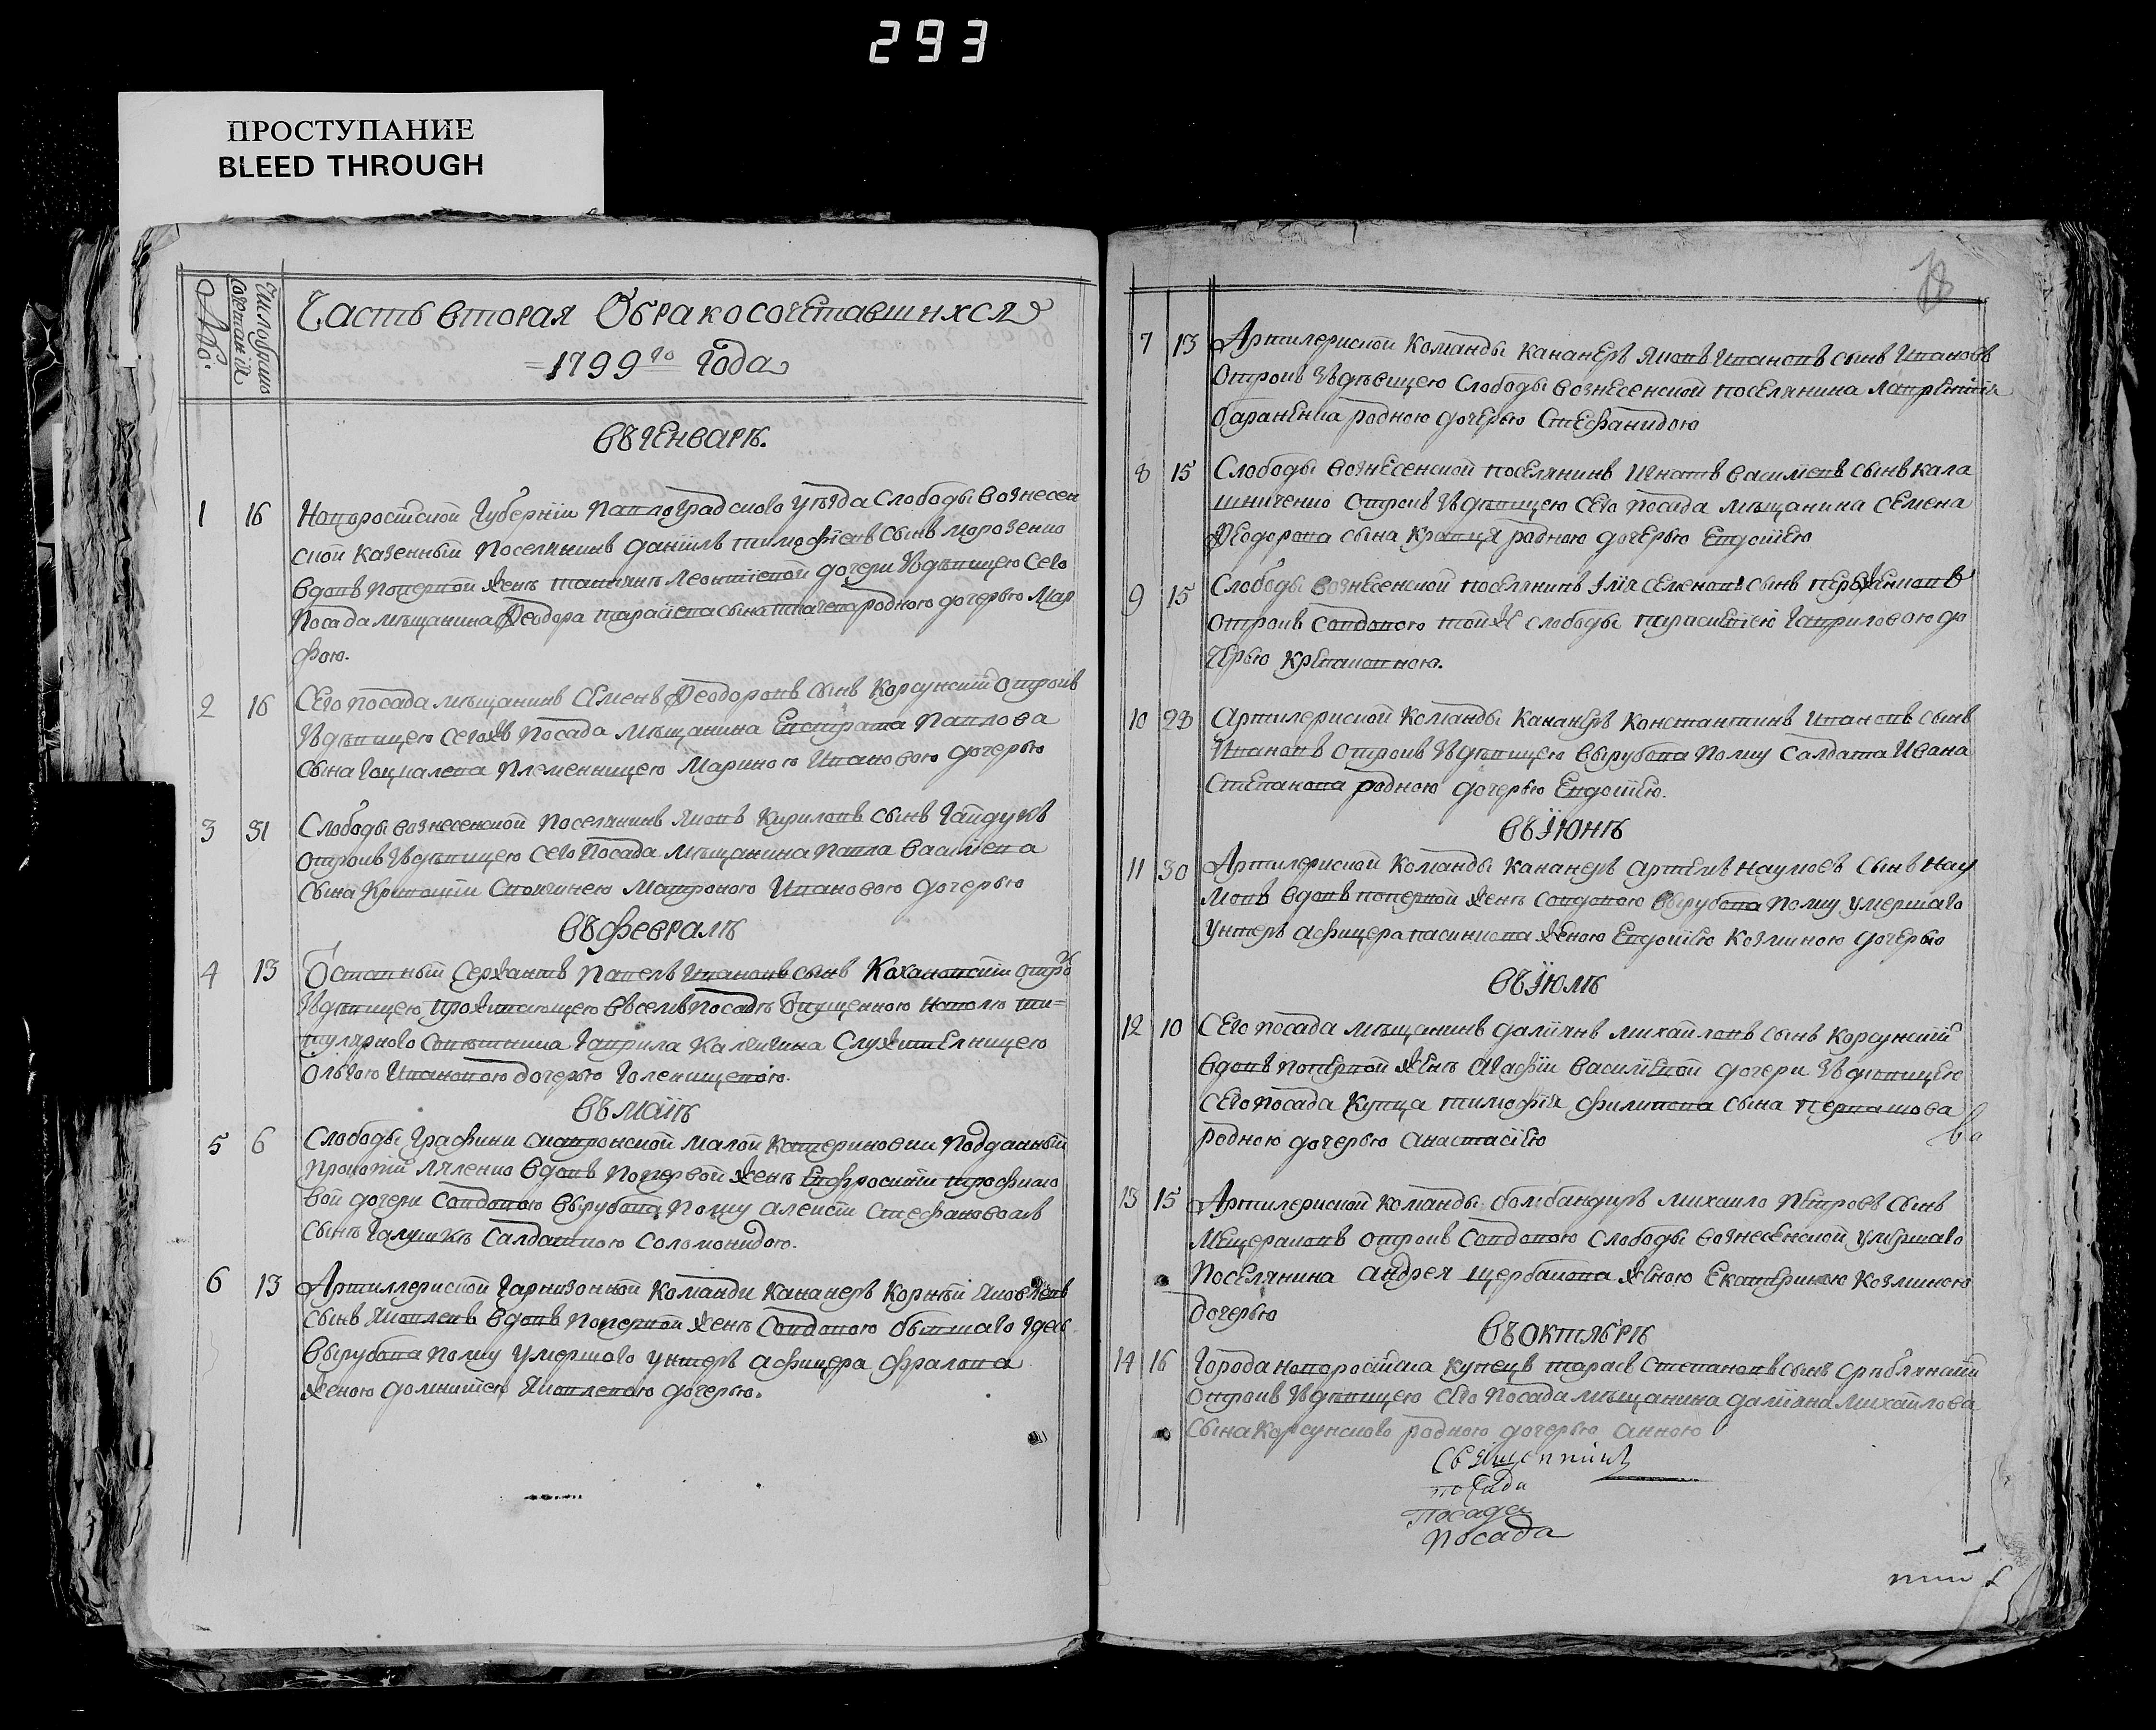 293
ПРОСТУПАНИЕ
BLEED THROUGH
№.
Число бракосочетаній
Часть вторая О бракосочетавшихся
1799го года
въ генварѣ.
1 16 Новоросійской губерніи Павлоградскаго уѣзда Слободы вознесен
ской казенный поселянинъ даніилъ тимофіевъ сынъ морозенко
вдовъ поперной женѣ татіянѣ леонтіевой дочери здѣвицею сего
посада мѣщанина феодора тарасіева сына ткачева родною дочерью мар
фою.
2 16 Сего посада мѣщанинъ Семенъ Феодоровъ сынъ Корсунскій отрокъ
здѣвицею сегожъ посада мѣщанина Евстрата Павлова
сына племенницею Мариною Ивановою дочерью
3 31 Слободы вознесенской поселянинъ Яковъ Кириловъ сынъ Гайдукъ
отрокъ здѣвицею сего посада мѣщанина Павла Василіева
сына своячинею Матроною Ивановою дочерью
въ февралѣ
4 13 Отставный Сержантъ Павелъ Ивановъ сынъ Кохановскій отрокъ
здѣвицею проживающею въ семъ посадѣ отпущенною наволю ти=
тулярного Совѣтника Гаврила Калячина Служителницею
Олгою Ивановою дочерью Голенищевою.
въ маіѣ
5 6 Слободы графини Скавронской малой Катериновки подданный
прокопій ляленко вдовъ попервой женѣ Евфросиніи трофимо
вой дочери Совдовою вырубова полку алексѣя Стефановоа
сына галушкѣ Салдаткою Соломонидою.
6 13 Артиллериской гарнизонной Команди Кананеръ Корній Яковлевъ
сынъ Яковлевъ вдовъ поперной женѣ Совдовою бывшаго здесь
Вырубова полку умершого унтеръ афицера фралова
женою домникею Яковлевою дочерью.
7 13 Артилериской Команды Кананеръ Яковъ Ивановъ сынъ Ивановъ
отрокъ здѣвицею Слободы вознесенской поселянина Лаврентія
бараненка родною дочерью Стефанидою
8 15 Слободы вознесенской поселянинъ Игнатъ Василіевъ сынъ кала
шниченко отрокъ здѣвицею сего посада мѣщанина Семена
феодорова сына Кравца родною дочерью Евдокіею
9 15 Слободы вознесенской поселянинъ Ілія Семеновъ сынъ
отрокъ Совдовою тойже слободы параскевіею гавриловою до
черью
10 23 Артилериской Команды Кананеръ Константинъ Ивановъ сынъ
Ивановъ отрокъ здѣвицею вырубова полку Салдата Ивана
Степанова родною дочерью Евдокіею.
въ іюнѣ
11 30 Артилериской Команды Кананеръ Артемъ Наумовъ сынъ Нау
мовъ вдовъ поперной женѣ Совдовою вырубова полку умершаго
унтеръ афицера женою Евдокіею Козминою дочерью
въ іюлѣ
12 10 Сего посада мѣщанинъ даміянъ михайловъ сынъ Корсунскій
вдовъ поперной женѣ Агафіи Василіевой дочери здѣвицею
сего посада Купца тимофія филипова сына
родною дочерью Анастасіею
13 15 Артилериской Команды бомбандиръ михайло петровъ сынъ
мещераковъ отрокъ Совдовою Слободы вознесенской умершаго
поселянина андрея щербакова женою Екатериною Козминою
дочерью
въ октябрѣ
14 16 Города новоросійска купецъ тарасъ Степановъ сынъ
отрокъ здѣвицею сего посада мѣщанина даміана михайлова
сына Корсунского родною дочерью анною
Священникъ
посада
посада
посада